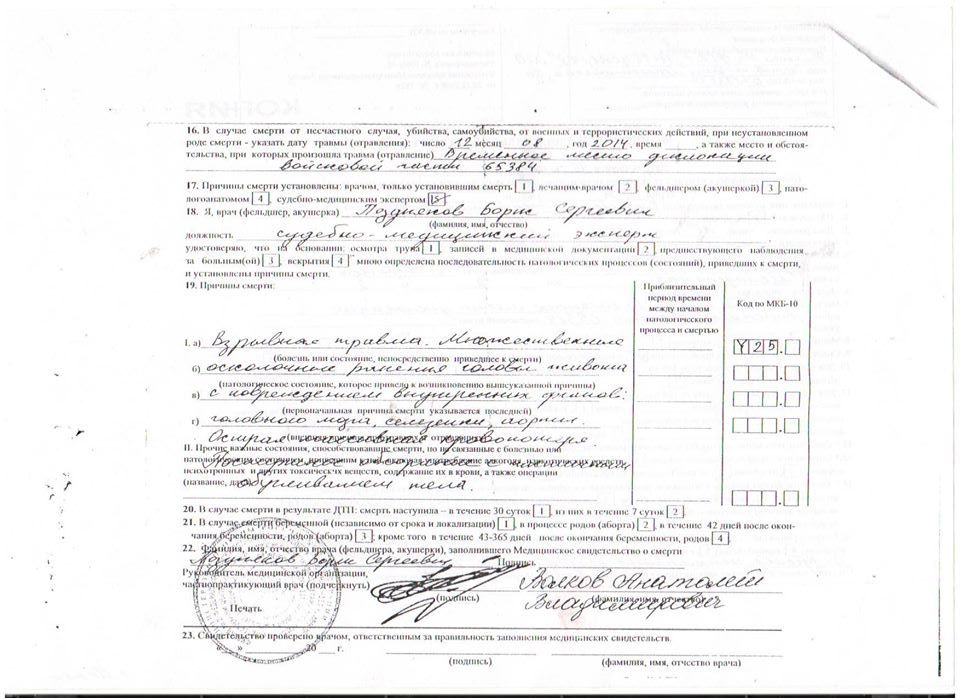 КОПИЯ
16. В случае смерти от несчастного случая, убийства, самоубийства, от военных и террористических действий, при неустановленном
роде смерти - указать дату травмы (отравления): число 12 месяц 08 , год 2014, время , а также место и обстоя-
тельства, при которых произошла травма (отравление) Временное место дислокации
войсковой части 65384
17. Причины смерти установлены: врачом, только установившим смерть 1 , лечащим врачом 2 , фельдшером (акушеркой) 3 , пато-
логоанатомом 4 , судебно-медицинским экспертом 5
18. Я, врач (фельдшер, акушерка) Поздняков Борис Сергеевич
(фамилия, имя, отчество)
должность судебно-медицинский эксперт
удостоверяю, что на основании: осмотра трупа 1 , записей в медицинской документации 2 , предшествующего наблюдения
за больным(ой) 3 , вскрытия 4 мною определена последовательность патологических процессов (состояний), приведших к смерти,
и установлены причины смерти.
19. Причины смерти:
Приблизительный период времени между началом патологического процесса и смертью
Код по МКБ-10
I. а) Взрывная травма. Множественные
Y 2 5 .
(болезнь или состояние, непосредственно приведшее к смерти)
б) осколочные ранения головы живота
(патологическое состояние, которое привело к возникновению вышеуказанной причины)
в) с повреждением внутренних
(первоначальная причина смерти указывается последней)
г) головного мозга, селезенки,
Острая кровопотеря.
II. Прочие важные состояния, способствовавшие смерти, но не связанные с болезнью или
патологическим состоянием,
психотропных и других токсических веществ, содержание их в крови, а также операции
(название, дата) обугливанием тела.
20. В случае смерти в результате ДТП: смерть наступила – в течение 30 суток 1 , из них в течение 7 суток 2 .
21. В случае смерти беременной (независимо от срока и локализации) 1 , в процессе родов (аборта) 2 , в течение 42 дней после окон-
чания беременности, родов (аборта) 3 ; кроме того в течение 43-365 дней после окончания беременности, родов 4 .
22. Фамилия, имя, отчество врача (фельдшера, акушерки), заполнившего Медицинское свидетельство о смерти
Поздняков Борис Сергеевич Подпись
Руководитель медицинской организации,
частнопрактикующий врач (подчеркнуть) Волков Анатолий
(подпись) (фамилия, имя, отчество)
Владимирович
Печать
23. Свидетельство проверено врачом, ответственным за правильность заполнения медицинских свидетельств.
« » 20 г.
(подпись) (фамилия, имя, отчество врача)